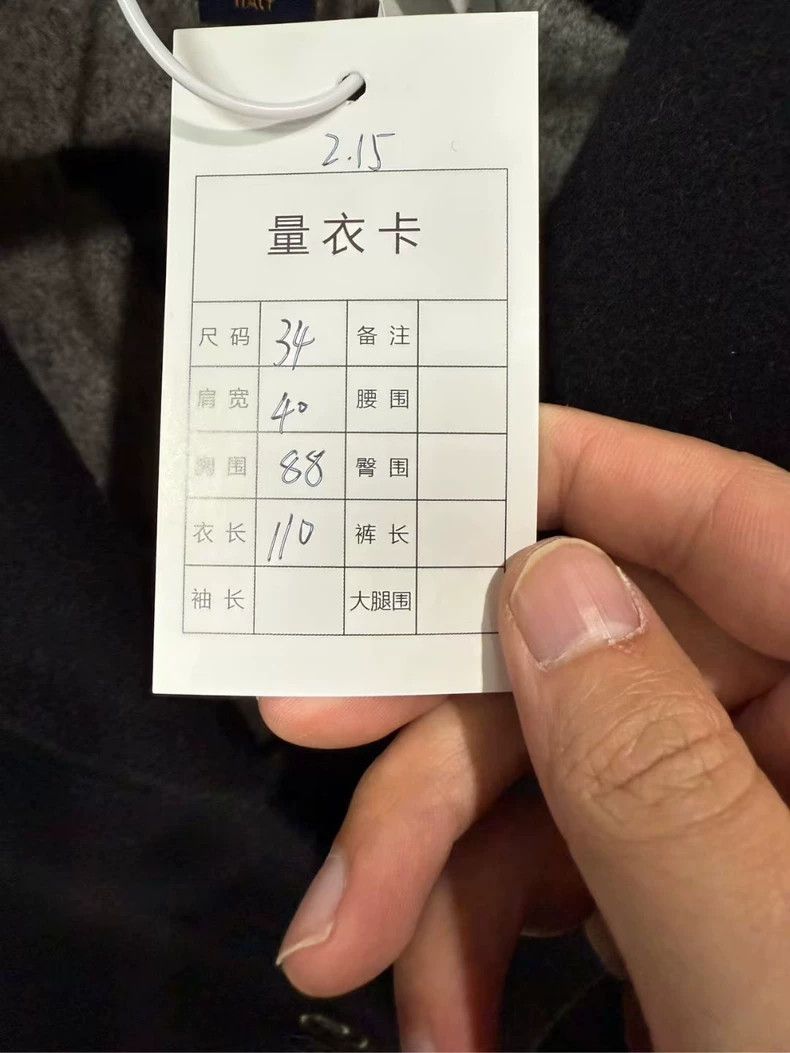 ITALY
2.15
量衣卡
尺码 34 备注
肩宽 40 腰围
胸围 88 臀围
衣长 110 裤长
袖长 大腿围